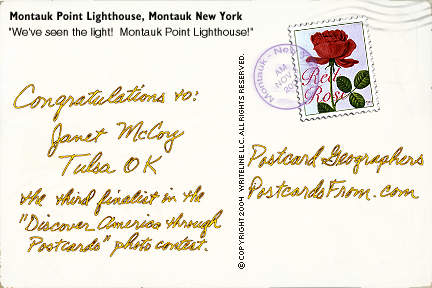 Montauk Point Lighthouse, Montauk New York
"We've seen the light! Montauk Point Lighthouse!"
Congratulations to:
Janet McCoy
Tulsa OK
the third finalist in the
"Discover America through
Postcards" photo contest.
© COPYRIGHT 2004 WRITELINE LLC. ALL RIGHTS RESERVED.
Montauk - New
AM
NOV
Red
Rose
Postcard Geographers
PostcardsFrom.com